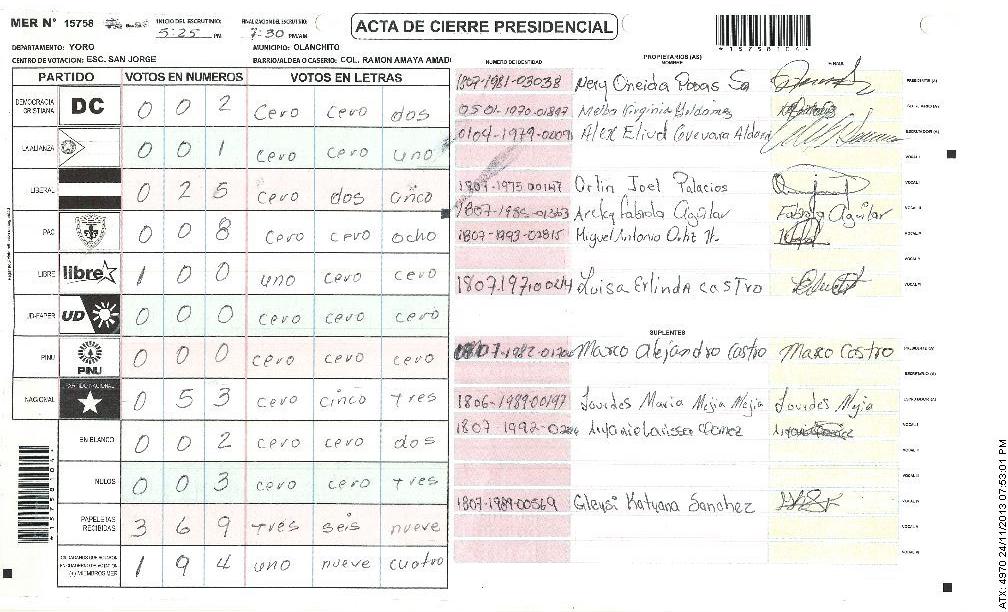 MER N° 15758
INICIO DEL ESCRUTINIO:
5:25 PM
FINALIZACION DEL ESCRUTINIO:
7:30 PM/AM
ACTA DE CIERRE PRESIDENCIAL
4157581044
DEPARTAMENTO: YORO
MUNICIPIO: OLANCHITO
CENTRO DE VOTACION: ESC. SAN JORGE
BARRIO/ALDEA O CASERIO: COL. RAMON AMAYA AMADI
PARTIDO VOTOS EN NUMEROS VOTOS EN LETRAS
DEMOCRACIA CRISTIANA DC 0 0 2 cero cero dos
LA ALIANZA 0 0 1 cero cero uno
LIBERAL 0 2 5 cero dos cinco
PAC 0 0 8 cero cero ocho
LIBRE libre 1 0 0 uno cero cero
UD-FAPER UD 0 0 0 cero cero cero
PINU PINU 0 0 0 cero cero cero
NAGIONAL PARTIDO NACIONAL 0 5 3 cero cinco tres
EN BLANCO 0 0 2 cero cero dos
NULOS 0 0 3 cero cero tres
PAPELETAS RECIBIDAS 3 6 9 tres seis nueve
CIUDADANOS QUE VOTARON EN CUADERNO DE VOTACION (+) MIEMBROS MER 1 9 4 uno nueve cuatro
PROPIETARIOS (AS)
NUMERO DE IDENTIDAD NOMBRE FIRMA
1807-1981-03038 Nery Oneida Posas Sa PRESIDENTE (A)
0501-1970-01897 Melba Virginia
0104-1979-0009 Alex Eliud Guevara Aldana ESCRUTADOR (A)
VOCAL I
1807-1975-00147 Orlin Joel Palacios VOCAL II
1807-1985-01363 Arcky Fabiola Aguilar Fabiola Aguilar VOCAL III
1807-1993-02815 Miguel Antonio Ortiz H. VOCAL IV
VOCAL V
1807.1971 00214 Luisa Erlinda Castro VOCAL VI
SUPLENTES
Marco Alejandro Castro Marco Castro PRESIDENTE (A)
SECRETARIO (A)
1806-1989-00197 Lourdes Maria Mejia Mejia Lourdes Mejia ESCRUTADOR (A)
1807 1992 VOCAL I
VOCAL II
VOCAL III
1807-1989-00569 Gleysi Katyana Sanchez VOCAL IV
VOCAL V
VOCAL VI
ATX: 4970 24/11/2013 07:53:01 PM